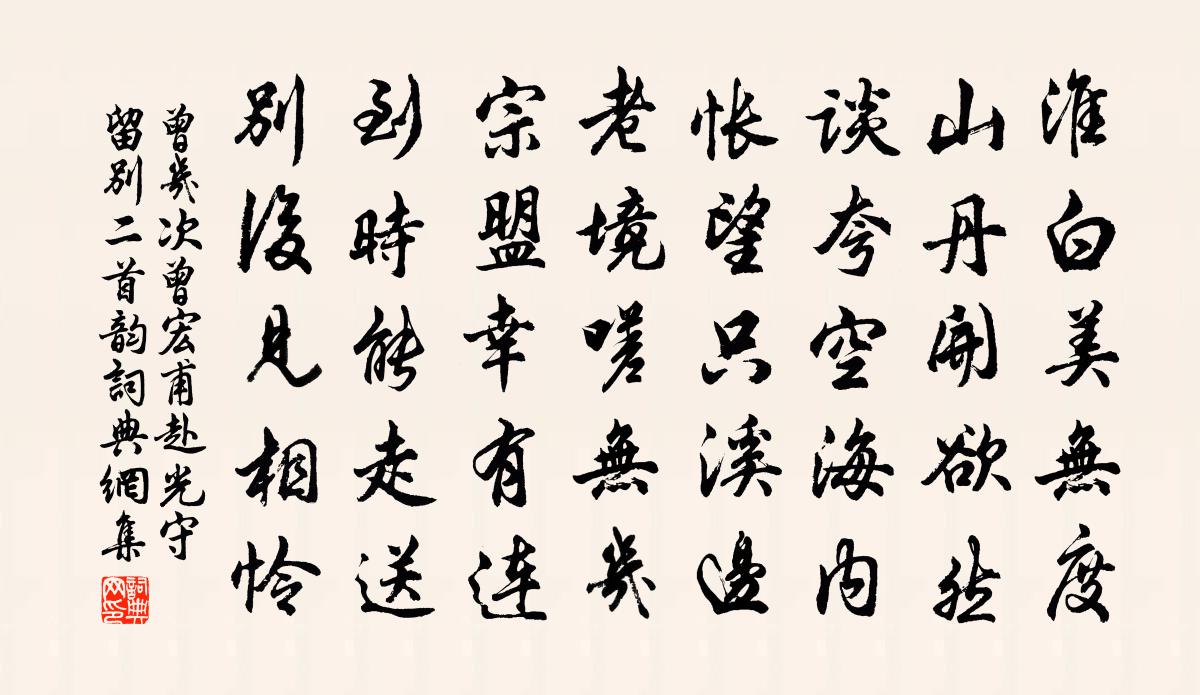 淮白美無度
山丹開欲然
談夸空海内
悵望只溪邊
老境嗟無幾
宗盟幸有連
到時能走送
別後見相憐
曾幾次曾宏甫赴光守
留別二首韵詞典網集